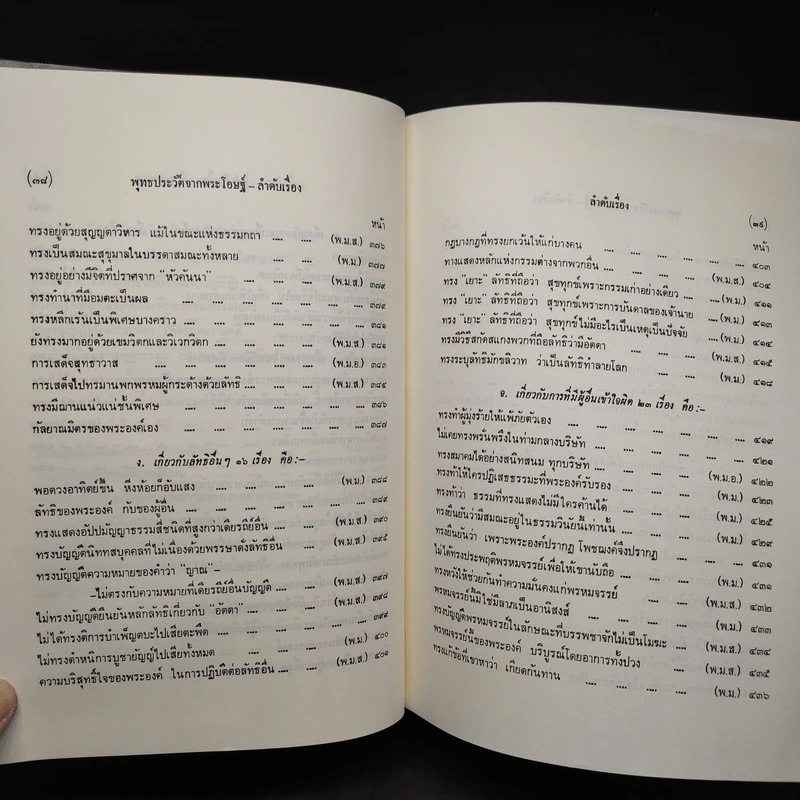 (๓๘) พุทธประวัติจากพระโอษฐ์ – ลำดับเรื่อง
หน้า
ทรงอยู่ด้วยสุญญตาวิหาร แม้ในขณะแห่งธรรมกถา .... .... (พ.ม.ส.) ๓๗๖
ทรงเป็นสมณะสุขุมาลในบรรดาสมณะทั้งหลาย .... .... (พ.ม.) ๓๗๗
ทรงอยู่อย่างมีจิตที่ปราศจาก "หัวคันนา" .... .... (พ.ม.ส.) ๓๗๙
ทรงทำนาที่มีอมตะเป็นผล .... .... .... .... .... ๓๗๙
ทรงหลีกเร้นเป็นพิเศษบางคราว .... .... .... .... .... ๓๘๑
ยังทรงมากอยู่ด้วยเขมวิตกและวิเวกวิตก .... .... .... (พ.ม.ส.) ๓๘๑
การเสด็จสุทธาวาส .... .... .... .... .... (พ.ม.อ.) ๓๘๓
การเสด็จไปทรมานพกพรหมผู้กระด้างด้วยลัทธิ .... .... (พ.ม.ส.) ๓๘๔
ทรงมีฌานแน่วแน่ชั้นพิเศษ .... .... .... .... .... ๓๘๖
กัลยาณมิตรของพระองค์เอง .... .... .... .... .... ๓๘๗
ง. เกี่ยวกับลัทธิอื่นๆ ๑๖ เรื่อง คือ :–
พอดวงอาทิตย์ขึ้น หิ่งห้อยก็อับแสง .... .... .... (พ.ม.) ๓๘๘
ลัทธิของพระองค์ กับของผู้อื่น .... .... .... .... .... ๓๘๙
ทรงแสดงอัปปมัญญาธรรมสี่ชนิดที่สูงกว่าเดียรถีย์อื่น .... .... (พ.ม.ส.) ๓๙๐
ทรงบัญญัตินิททสบุคคลที่ไม่เนื่องด้วยพรรษาดั่งลัทธิอื่น .... (พ.ม.ส.) ๓๙๕
ทรงบัญญัติความหมายของคำว่า "ญาณ" –
–ไม่ตรงกับความหมายที่เดียรถีย์อื่นบัญญัติ .... .... (พ.ม.ส.) ๓๙๗
ไม่ทรงบัญญัติยืนยันหลักลัทธิเกี่ยวกับ "อัตตา" .... .... (พ.ม.ส.) ๓๙๘
ไม่ได้ทรงติการบำเพ็ญตบะไปเสียตะพึด .... .... .... .... ๓๙๙
ไม่ทรงตำหนิการบูชายัญญ์ไปเสียทั้งหมด .... .... .... (พ.ม.) ๔๐๐
ความบริสุทธิ์ใจของพระองค์ ในการปฏิบัติต่อลัทธิอื่น .... .... (พ.ม.ส.) ๔๐๑
ลำดับเรื่อง (๓๙)
หน้า
กฎบางกฎที่ทรงยกเว้นให้แก่บางคน .... .... .... .... .... ๔๐๓
ทางแสดงหลักแห่งกรรมต่างจากพวกอื่น .... .... .... (พ.ม.ส.) ๔๐๔
ทรง "เยาะ" ลัทธิที่ถือว่า สุขทุกข์เพราะกรรมเก่าอย่างเดียว .... .... (พ.ม.) ๔๑๑
ทรง "เยาะ" ลัทธิที่ถือว่า สุขทุกข์เพราะการบันดาลของเจ้านาย .... (พ.ม.) ๔๑๓
ทรง "เยาะ" ลัทธิที่ถือว่า สุขทุกข์ไม่มีอะไรเป็นเหตุเป็นปัจจัย .... (พ.ม.) ๔๑๔
ทรงมีวิธีสกัดสแกงพวกที่ถือลัทธิว่ามีอัตตา .... .... .... (พ.ม.ส.) ๔๑๕
ทรงระบุลัทธิมักขลิวาท ว่าเป็นลัทธิทำลายโลก .... .... (พ.ม.) ๔๑๘
จ. เกี่ยวกับการที่มีผู้อื่นเข้าใจผิด ๒๓ เรื่อง คือ :–
ทรงทำผู้มุ่งร้ายให้แพ้ภัยตัวเอง .... .... .... .... .... ๔๑๙
ไม่เคยทรงพรั่นพรึงในท่ามกลางบริษัท .... .... .... .... ๔๒๑
ทรงสมาคมได้อย่างสนิทสนม ทุกบริษัท .... .... .... (พ.ม.อ.) ๔๒๒
ทรงท้าให้ใครปฏิเสธธรรมะที่พระองค์รับรอง .... .... (พ.ม.ส.) ๔๒๓
ทรงท้าว่า ธรรมที่ทรงแสดงไม่มีใครค้านได้ .... .... .... .... ๔๒๕
ทรงยืนยันว่ามีสมณะอยู่ในธรรมวินัยนี้เท่านั้น .... .... (พ.ม.ส.) ๔๒๙
ทรงยืนยันว่า เพราะพระองค์ปรากฏ โพชฌงค์จึงปรากฏ .... ....
ไม่ได้ทรงประพฤติพรหมจรรย์เพื่อให้เขานับถือ .... .... (พ.ม.ส.) ๔๓๑
ทรงหวังให้ช่วยกันทำความมั่นคงแก่พรหมจรรย์ .... .... (พ.ม.ส.) ๔๓๒
พรหมจรรย์นี้มิใช่มีลาภเป็นอานิสงส์ .... .... .... .... ๔๓๓
ทรงบัญญัติพรหมจรรย์ในลักษณะที่บรรพชาจักไม่เป็นโมฆะ .... (พ.ม.ส.)
พรหมจรรย์นี้ของพระองค์ บริบูรณ์โดยอาการทั้งปวง .... (พ.ม.ส.) ๔๓๕
ทรงแก้ข้อที่เขาหาว่า เกียดกันทาน .... .... .... (พ.ม.) ๔๓๖